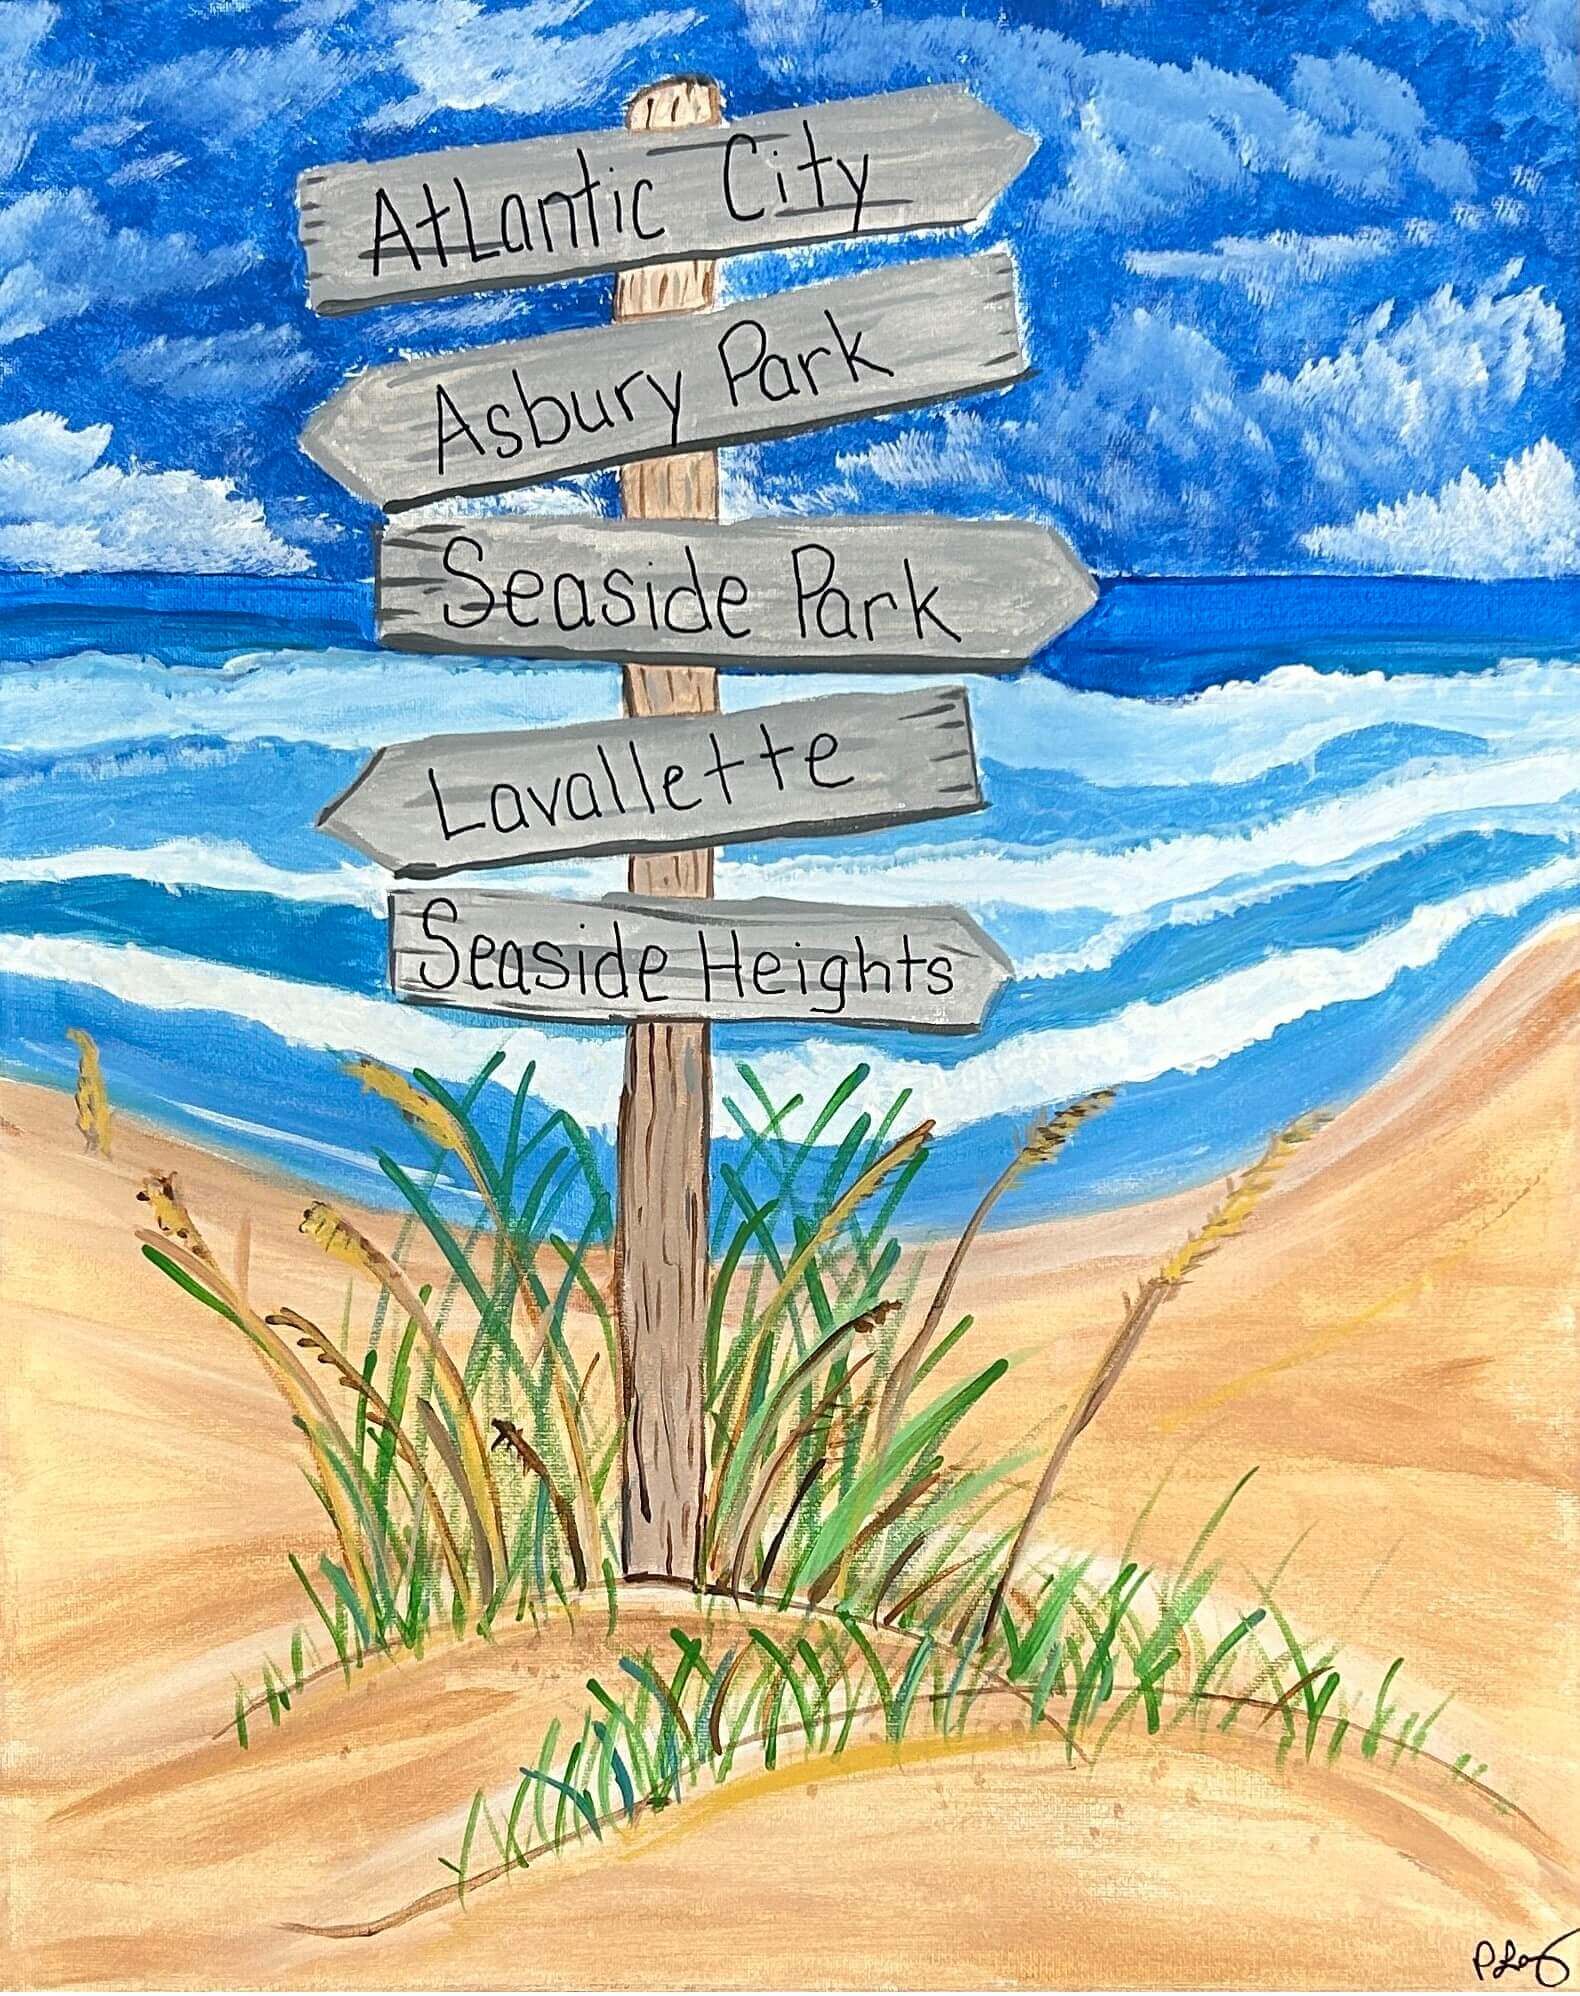 Atlantic City
Asbury Park
Seaside Park
Lavallette
Seaside Heights